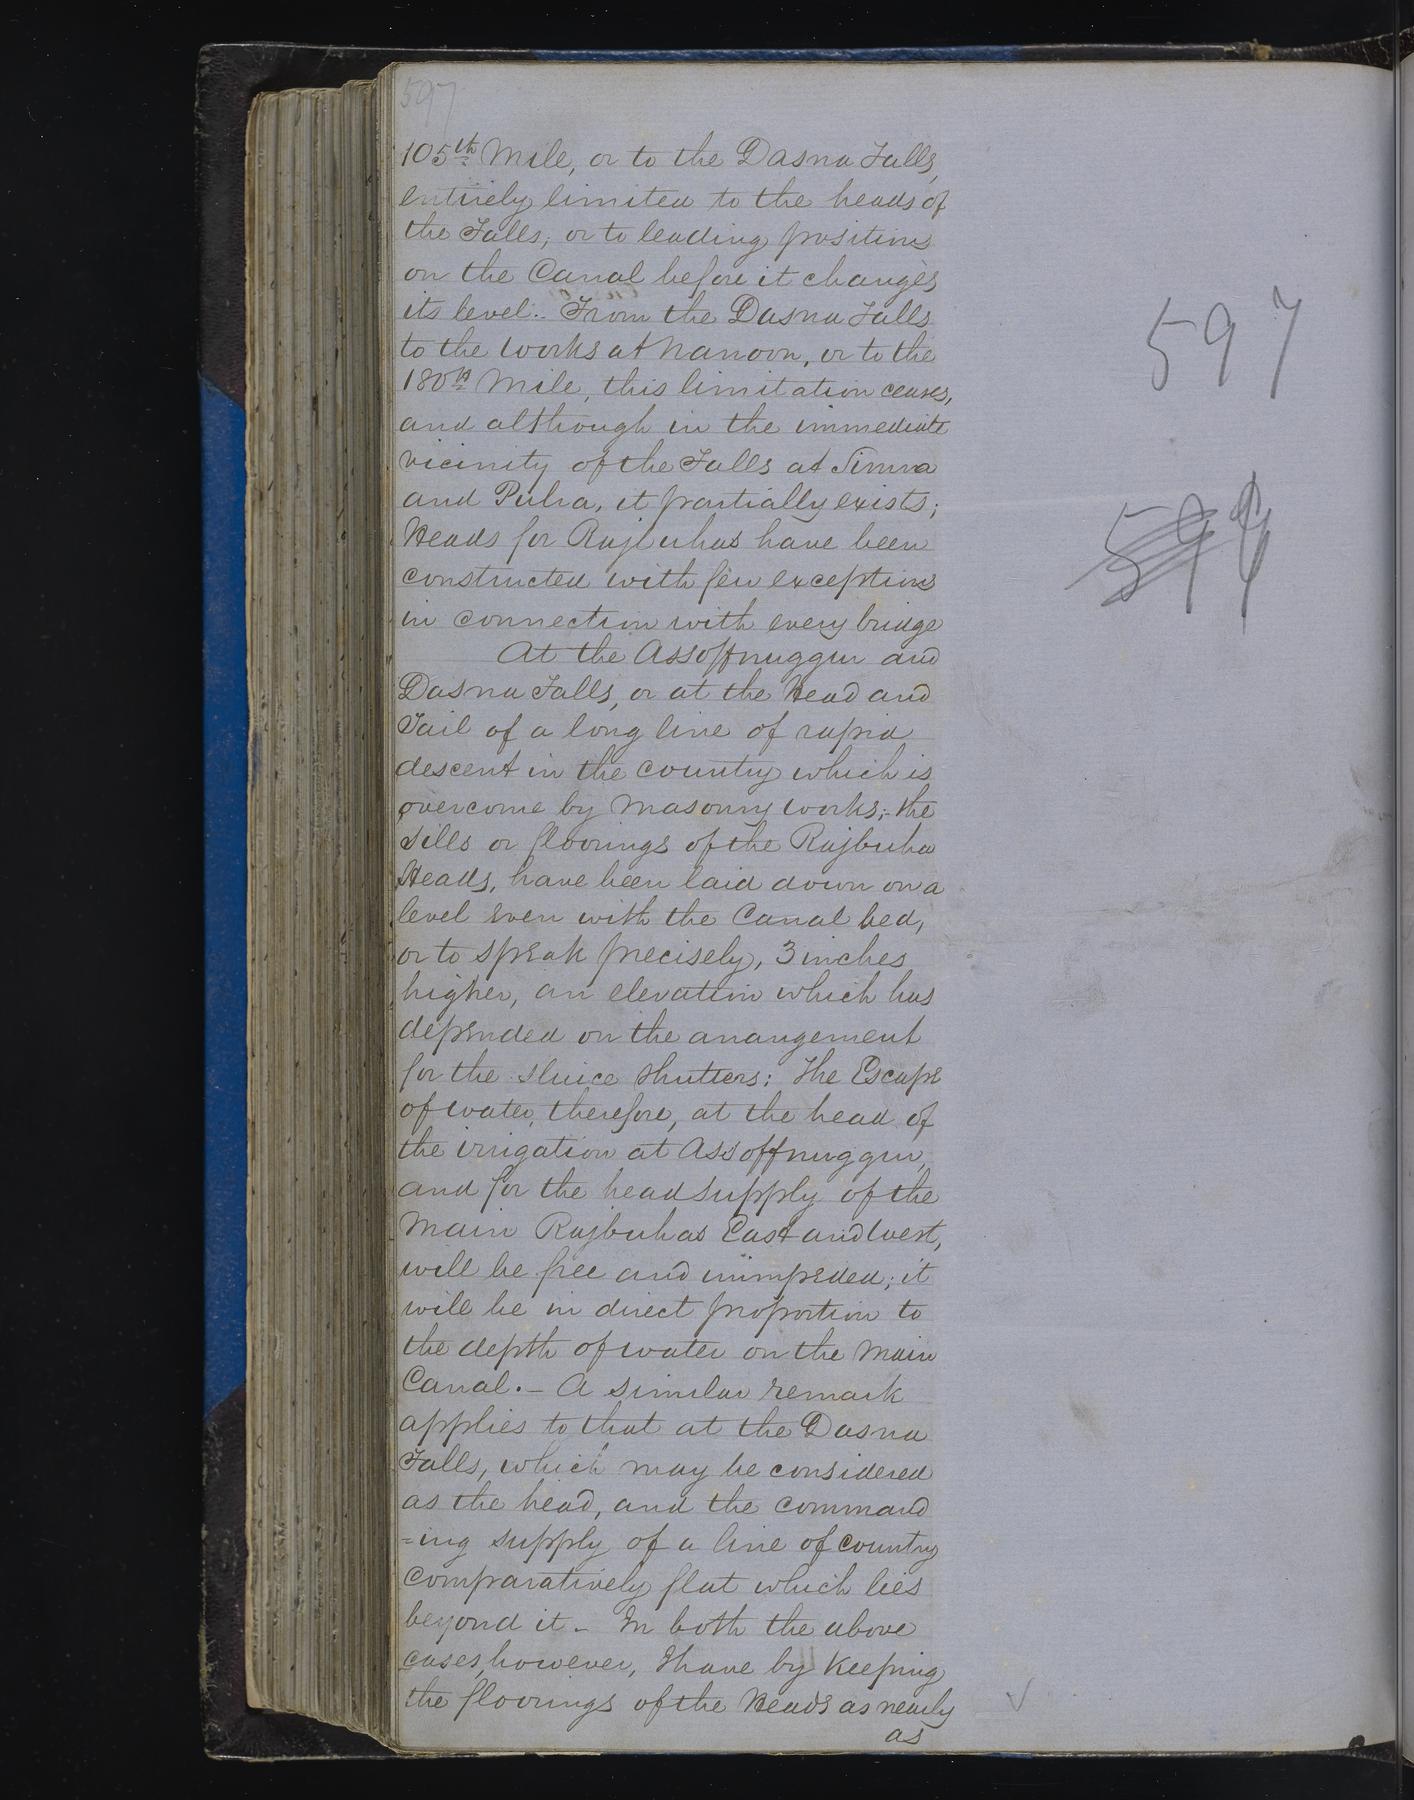 597
105th Mile, or to the Dasna Falls,
entirely limited to the heads of
the Falls, or to leading positions
on the Canal before it changes
its level.- From the Dasna Falls
to the works at Nanoon, or to the
180th Mile, this limitation ceases,
and although in the immediate
vicinity of the Falls at Simra
and Pulra, it partially exists;
Heads for Rajbuhas have been
constructed with few exceptions
in connection with every bridge
At the Assoffnuggur and
Dasna Falls, or at the Head and
Tail of a long line of rapid
descent in the country which is
overcome by masonry works;- the
Sills or floorings of the Rajbuha
Heads, have been laid down on a
level even with the Canal bed,
or to speak precisely, 3 inches
higher, an elevation which has
depended on the arrangement
for the sluice shutters; The Escape
of water, therefore, at the head of
the irrigation at Assoffnuggur,
and for the head supply of the
Main Rajbuhas East and West,
will be free and unimpeded; it
will be in direct proportion to
the depth of water on the Main
Canal.- A similar remark
applies to that at the Dasna
Falls, which may be considered
as the head, and the command
=ing supply of a line of country
comparatively flat which lies
beyond it - In both the above
cases, however, I have by keeping
the floorings of the Heads as nearly
as
597